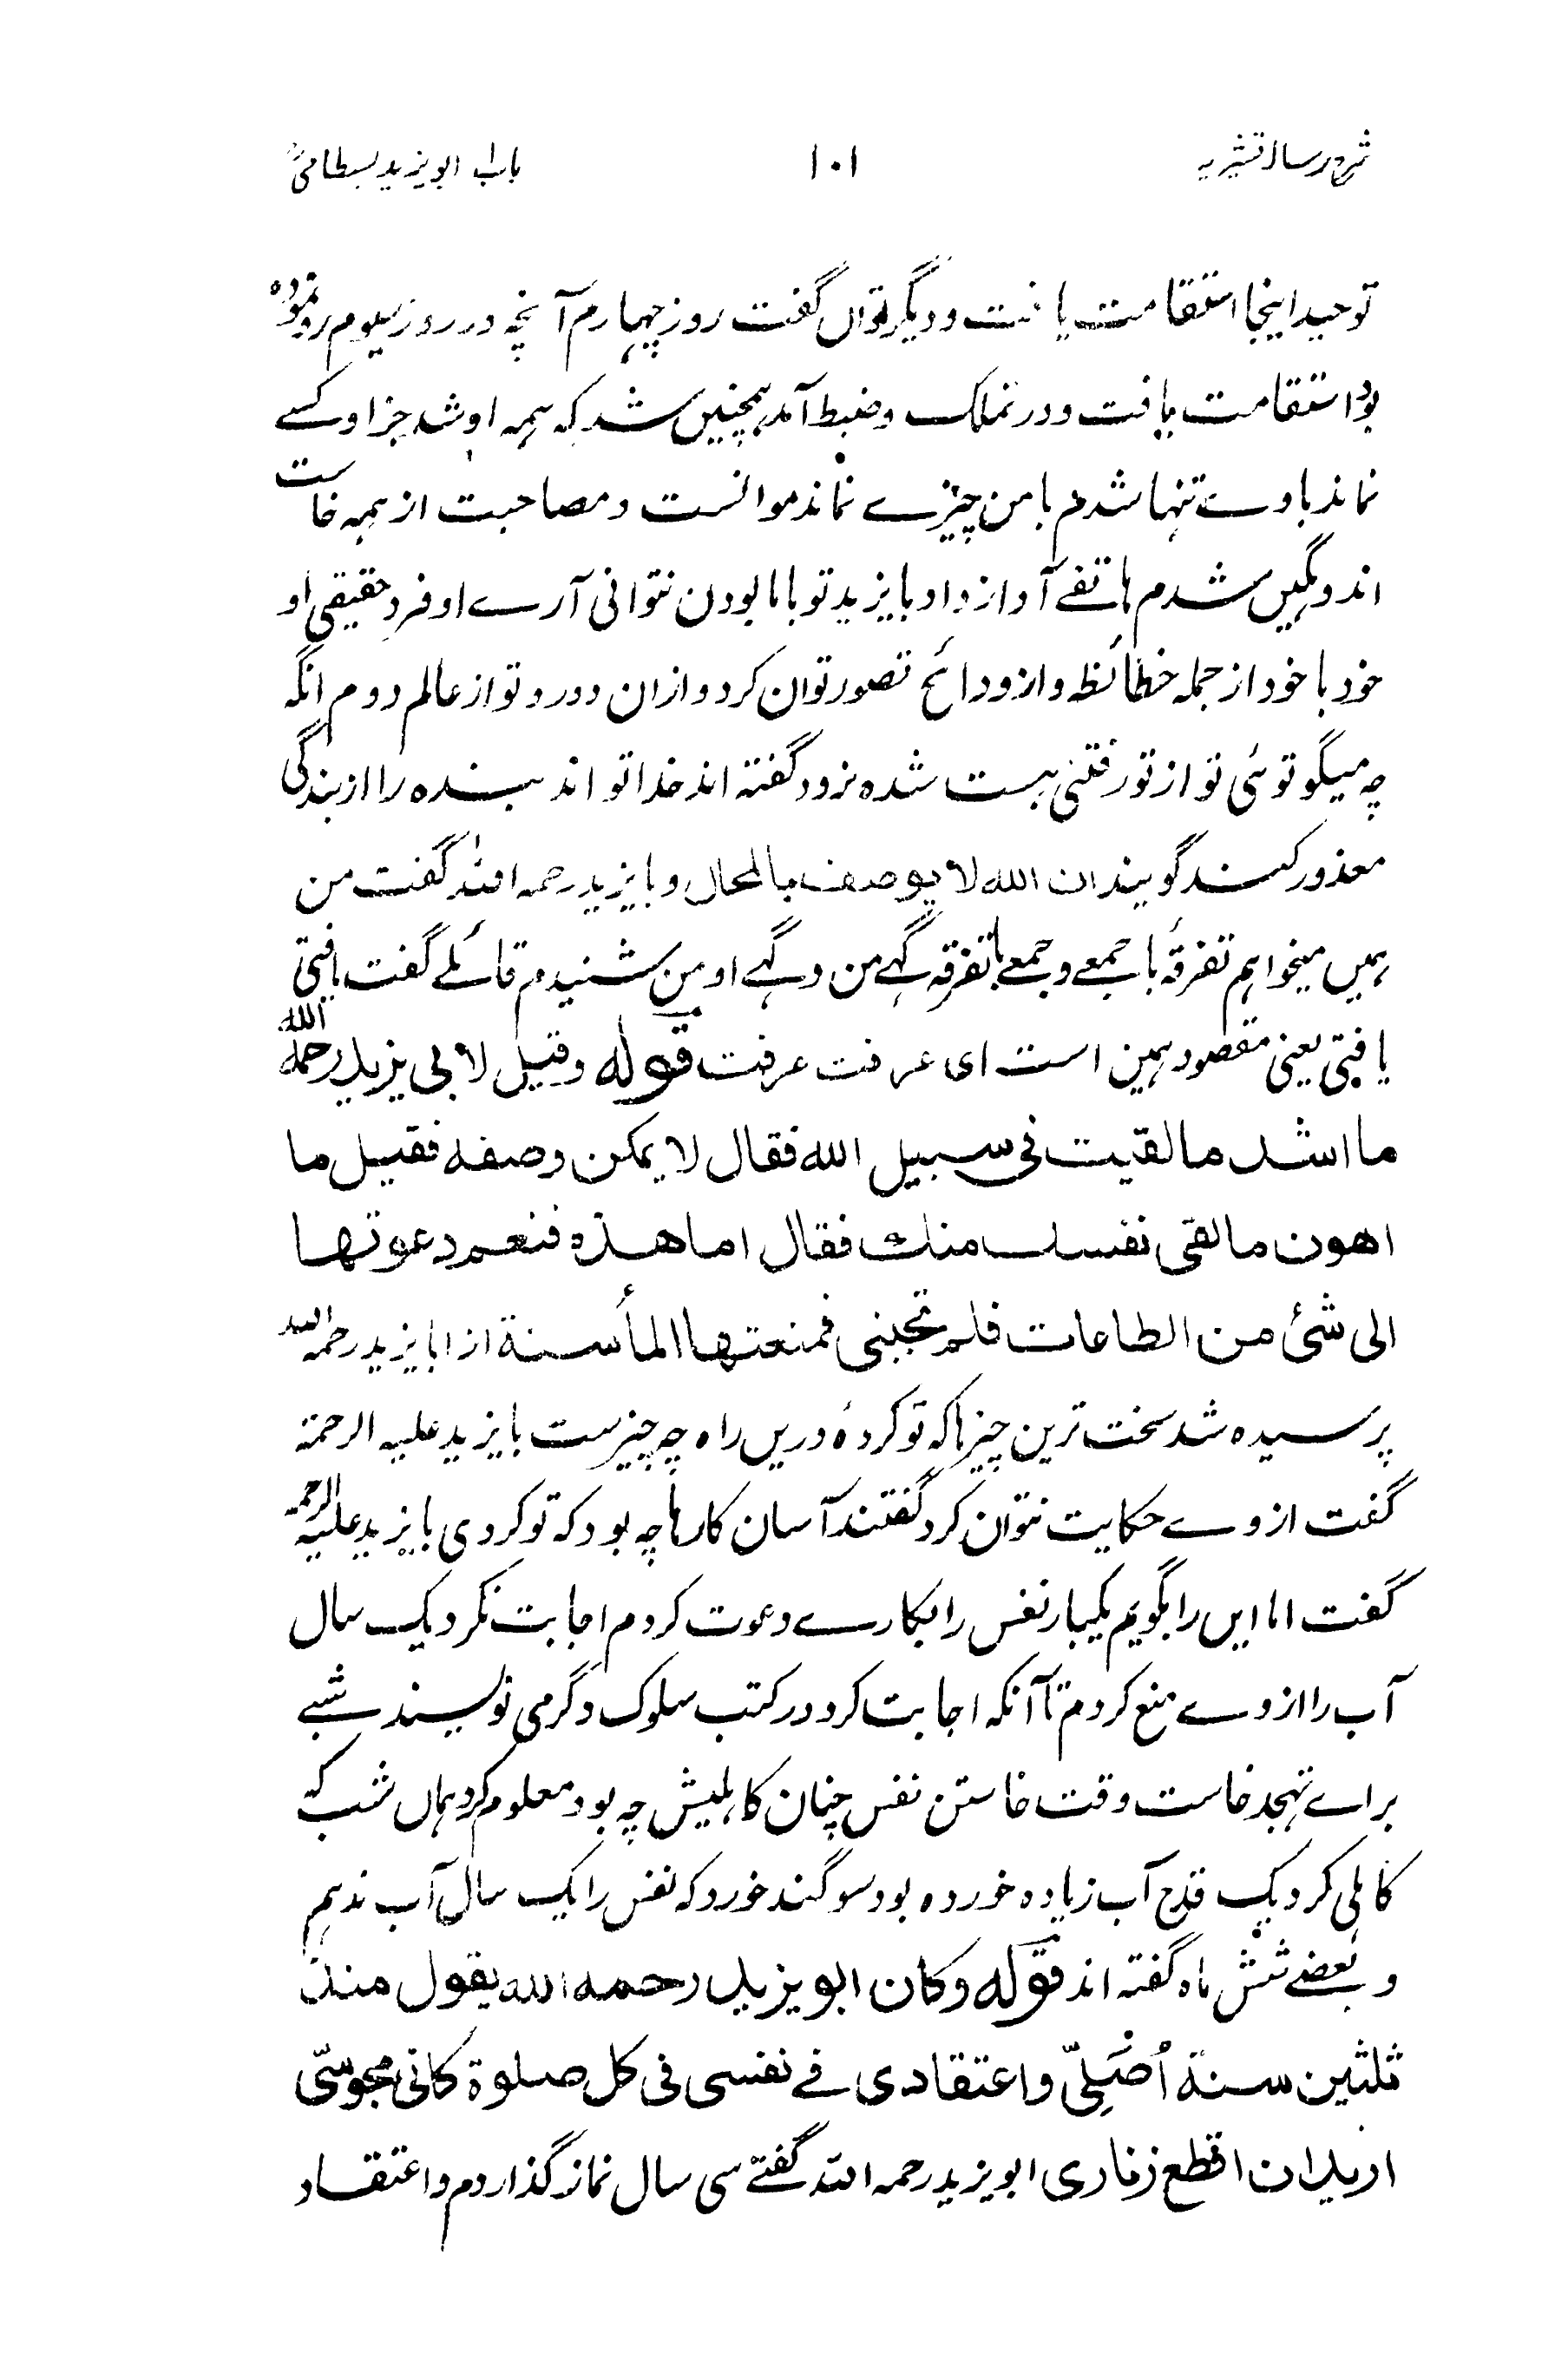 شرح رسالہ قشیریہ ۱۰۱ باب ابو یزید بسطامیؒ
توحید اینجا استقامت یافت و دیگر تواں گفت روز چہارم آنچہ در روز سیوم رو نمودہ
بود استقامت یافت و در تملک و ضبط آمد ہمچنیں شد کہ ہمہ او شد جز او کسے
نماند باوے تنہا شدم با من چیزے نماند موانست و مصاحبت از ہمہ خاست
اندوہگیں شدم ہاتفے آواز داد بایزید تو باما بودن نتوانی آرے او فرد حقیقی او
خود با خود از جملہ خطائظ و از ودائع تصور توان کرد و ازان دور و تو از عالم دوم انگہ
چہ میگو توئی تو از تو رفتنی ہست شدہ نرود گفتہ اند خدا تواند بندہ را از بندگی
معذور کند گویند ان الله لا یوصف بالمحال و بایزید رحمہ اللہ گفت من
ہمیں میخواہم تفرقۂ با جمعے و جمعے با تفرقہ گہے من و گہے او من شنیدم قائلے گفت یافتی
یافتی یعنی مقصود ہمین است ای عرفت عرفت قوله وقیل لابی یزید رحمه الله
ما اشد ما لقیت فی سبیل الله فقال لا یمکن وصفه فقیل ما
اهون ما لقی نفسك منك فقال اما هذه فنعم دعوتها
الی شئ من الطاعات فلم تجبنی فمنعتها الماٴ سنة از ابایزید رحمہ اللہ
پرسیدہ شد سخت ترین چیزہا کہ تو کردۂ دریں راہ چہ چیزست بایزید علیہ الرحمۃ
گفت از وے حکایت نتوان کرد گفتند آسان کارہا چہ بود کہ تو کردی بایزید علیہ الرحمہ
گفت اما ایں را بگویم یکبار نفس را بکارے دعوت کردم اجابت نکرد یک سال
آب را از وے منع کردم تا آنکہ اجابت کرد در کتب سلوک دگر می نویسند شبے
براے تہجد خاست وقت خاستن نفس چنان کاہلیش چہ بود معلوم کرد ہماں شب کہ
کاہلی کرد یک قدح آب زیادہ خوردہ بود سوگند خورد کہ نفس را یک سال آب ندہم
و بعضے شش ماہ گفتہ اند قوله وکان ابو یزید رحمه الله یقول منذ
ثلثین سنة اُصَلِّی و اعتقادی فے نفسی فی کل صلوة کانی مجوسّی
ارید ان اقطع زناری ابو یزید رحمہ اللہ گفتے سی سال نماز گذاردم و اعتقاد